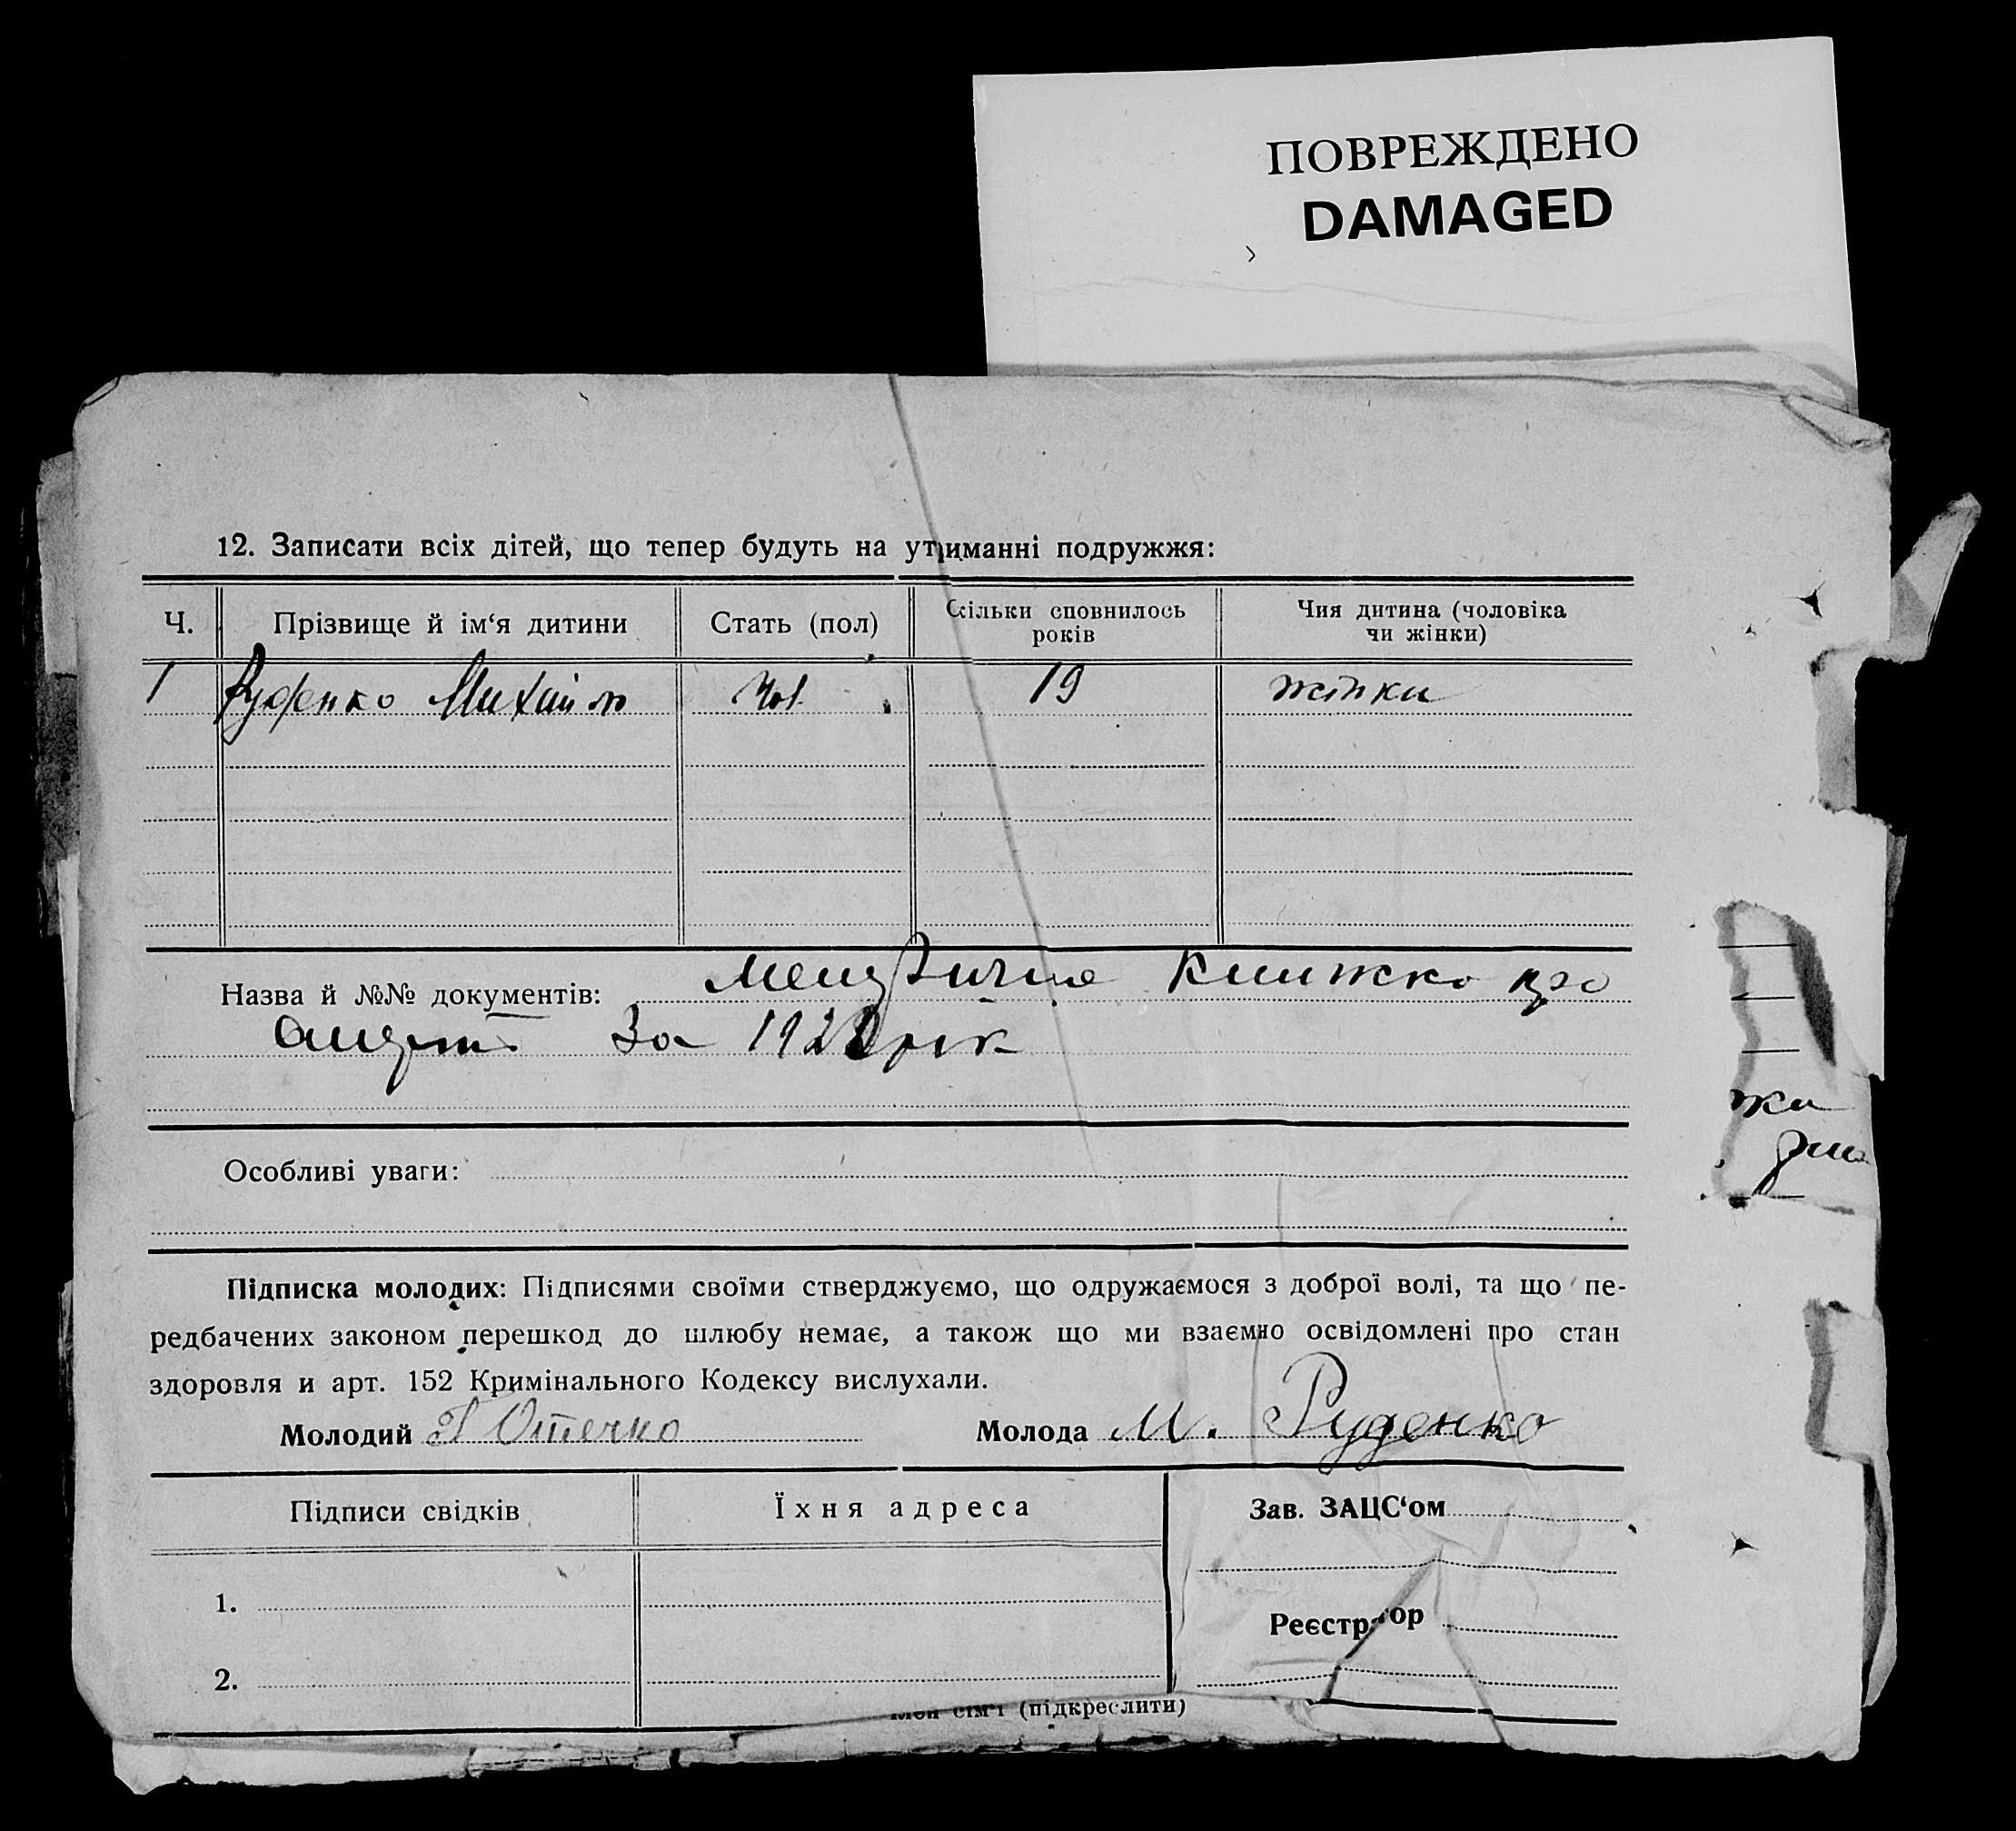 ПОВРЕЖДЕНО
DAMAGED
12. Записати всіх дітей, що тепер будуть на утриманні подружжя:
Ч. Прізвище й ім‘я дитини Стать (пол) Скільки сповнилось років Чия дитина (чоловіка чи жінки)
1 Руденко Михайло Чол. 19 жінки
Назва й №№ документів: книжка про
за 192 рік
жа
Особливі уваги:
Підписка молодих: Підписями своїми стверджуємо, що одружаємося з доброї волі, та що пе-
редбачених законом перешкод до шлюбу немає, а також що ми взаємно освідомлені про стан
здоровля и арт. 152 Кримінального Кодексу вислухали.
Молодий Молода М. Руденко
Підписи свідків Їхня адреса Зав. ЗАЦС‘ом
1.
Реєстратор
2.
сім'ї (підкреслити)